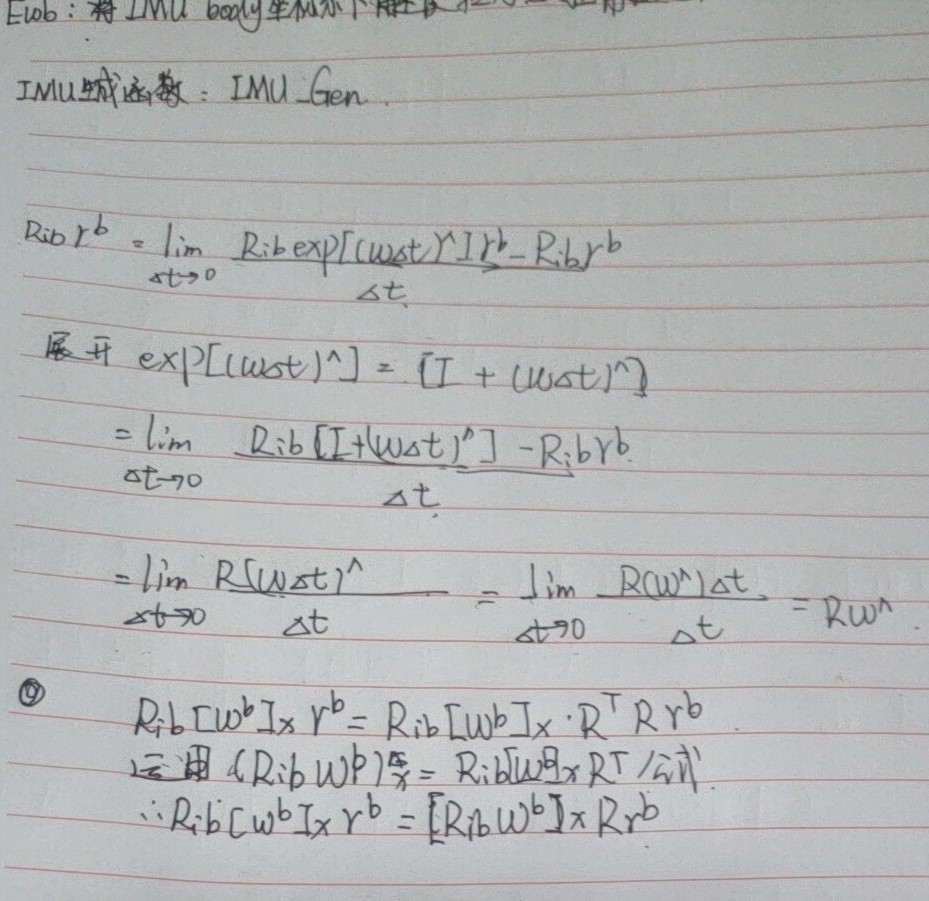 Ewb：将 IMU body坐标系下
IMU生成函数：IMU_Gen.
Rib r^b = lim Δt→0 (Rib exp[(wΔt)^] r^b - Rib r^b) / Δt
展开 exp[(wΔt)^] = [I + (wΔt)^]
= lim Δt→0 (Rib [I+(wΔt)^] - Rib r^b) / Δt
= lim Δt→0 R(wΔt)^ / Δt = lim Δt→0 R(w^)Δt / Δt = Rw^.
Rib[w^b]× r^b = Rib[w^b]× · R^T R r^b
运用 (Rib w^b)× = Rib[w^b]× R^T 公式
∴ Rib[w^b]× r^b = [Rib w^b]× R r^b